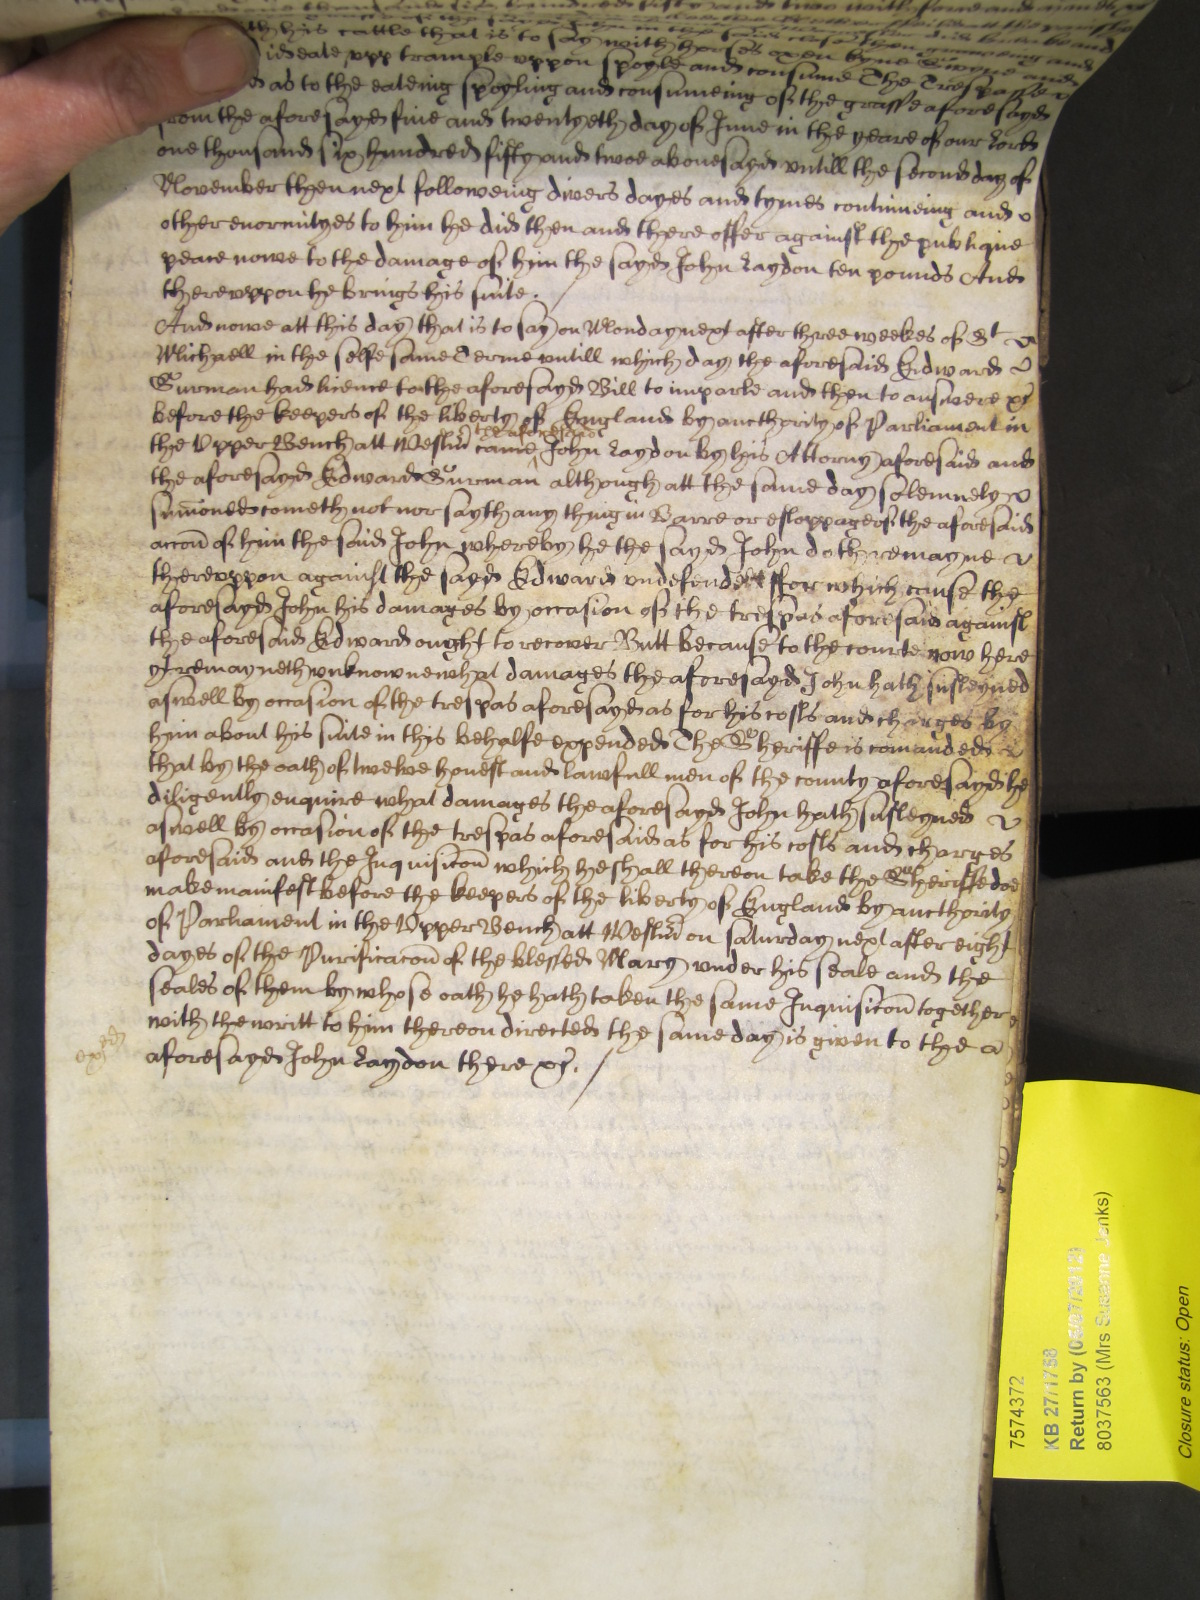 hundred fifty and two with force and armes
th his cattle that is to say with horses oxen kyne Swyne and
did eate upp trample uppon spoyle and consume The Trespasse
as to the eateing spoyling and consumeing of the grasse aforesayd
from the aforesayd five and twentyeth day of June in the yeare of our Lord
one thousand six hundred fifty and twoe abovesayd untill the second day of
November then next followeing divers dayes and tymes continueing and
other enormityes to him he did then and there offer against the publique
peace nowe to the damage of him the sayd John Laydon ten pounds And
thereuppon he brings his suite.
And nowe att this day that is to say on Monday next after three weekes of St
Michaell in the selfe same Terme untill which day the aforesaid Edward
Surman had licence to the aforesayd Bill to imparle and then to answere &c
before the keepers of the liberty of England by aucthority of Parliament in
the Upper Bench att Westm came the aforesaid John Laydon by his Attorny aforesaid and
the aforesayd Edward Surman although att the same day solemnely
sumoned cometh not nor sayth any thing in Barre or estoppage of the aforesaid
accon of him the said John whereby he the sayd John doth remayne
thereuppon against the sayd Edward undefended ffor which cause the
aforesayd John his damages by occasion of the trespas aforesaid against
the aforesaid Edward ought to recover Butt because to the courte now here
yt remayneth unknowne what damages the aforesayd John hath susteyned
aswell by occasion of the trespas aforesayd as for his costs and charges by
him about his suite in this behalfe expended The Sheriffe is comanded
that by the oath of twelve honest and lawfull men of the county aforesayd he
diligently enquire what damages the aforesayd John hath susteyned
aswell by occasion of the trespas aforesaid as for his costs and charges
aforesaid and the Inquisicon which he shall thereon take the Sheriffe doe
make manifest before the keepers of the liberty of England by aucthority
of Parliament in the Upper Bench att Westm on saturday next after eight
dayes of the Purificacon of the blessed Mary under his seale and the
seales of them by whose oath he hath taken the same Inquisicon together
with the writt to him thereon directed the same day is given to the
aforesayd John Laydon there &c.
7574372
KB 27/1758
Return by (06/07/2012)
8037563 (Mrs Susanne Jenks)
Closure status: Open